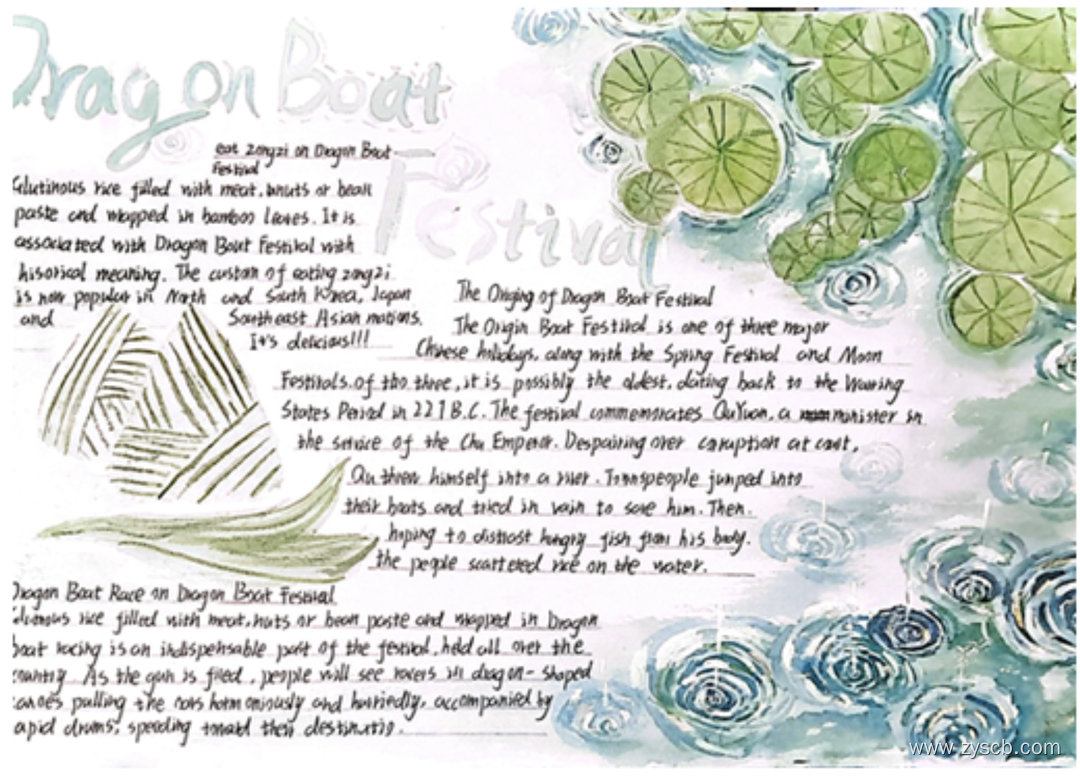 Dragon Boat
Festival
eat zongzi on Dragon Boat
Festival
Glutinous rice filled with meat, nuts or bean
paste and wrapped in bamboo leaves. It is
associated with Dragon Bout Festival with
hisorical meaning. The custom of eating zongzi
is now popular in North and South Korea, Japan
and Southeast Asian nations.
It's delicious!!!
The Origing of Dragon Boat Festival
The Origin Boat Festival is one of three major
Chinese holidays, along with the Spring Festival and Moon
Festivals. of tho three, it is possibly the oldest, dating back to the Warring
States Period in 227 B.C. The festival commemorates Qu Yuan, a minister in
the service of the Chu Emperor. Despairing over corruption at court,
Qu threw himself into a river. Townspeople jumped into
their boats and tried in vain to save him. Then.
hoping to distract hungry fish from his body.
the people scattered rice on the water.
Dragon Boat Race on Dragon Boat Festival
rice filled with meat, nuts or bean paste and wrapped in Dragon
boat racing is an indispensable part of the festival, held all over the
country. As the gun is fired, people will see racers in dragon-shaped
canoes pulling the oars harmoniously and hurriedly, accompanied by
rapid drums, speeding toward their
www.zyscb.com